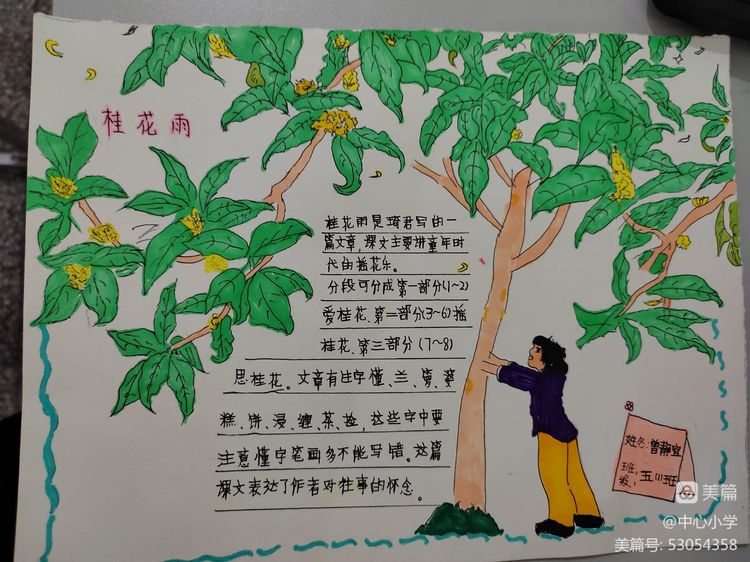 桂花雨
桂花雨是琦君写的一
篇文章,课文主要讲童年时
代的摇花乐。
分段可分成第一部分(1~2)
爱桂花、第二部分(3~6)摇
桂花、第三部分(7~8)
思桂花。文章有生字懂、兰、箩、婆
糕、饼、浸、缠、茶、捡,这些字中要
注意懂字笔画多不能写错。这篇
课文表达了作者对往事的怀念。
姓名:曾静宜
班级:五(1)班
美篇
@中心小学
美篇号: 53054358